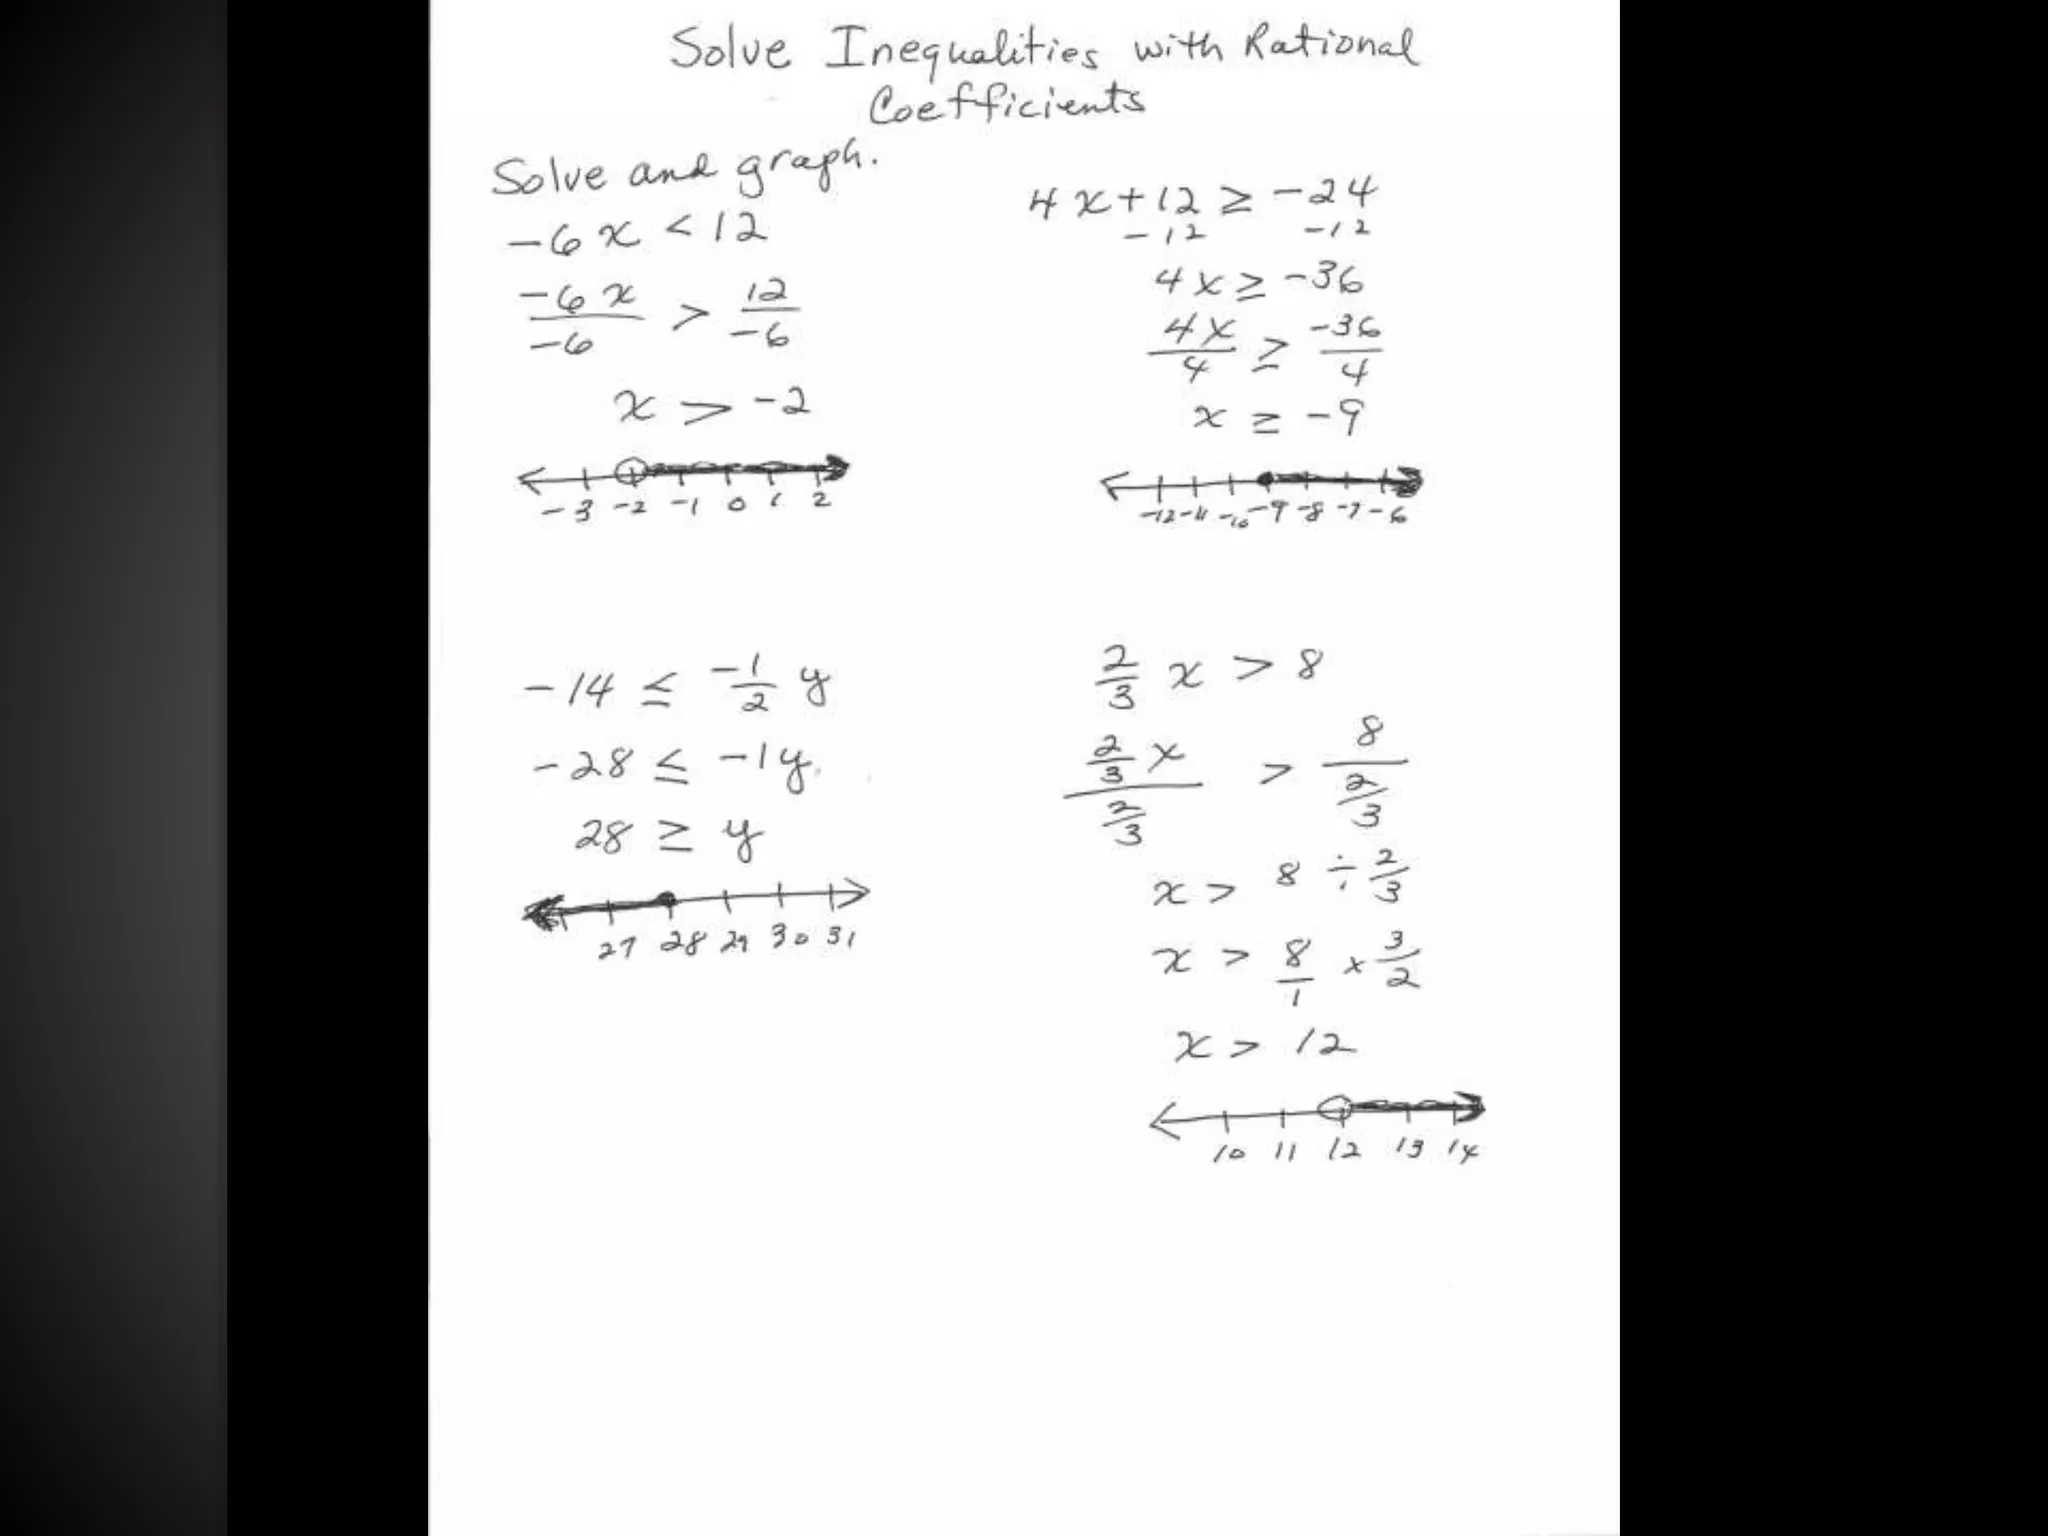 Solve Inequalities with Rational
Coefficients
Solve and graph.
-6x < 12
-6x/-6 > 12/-6
x > -2
-3 -2 -1 0 1 2
4x+12 ≥ -24
-12 -12
4x ≥ -36
4x/4 ≥ -36/4
x ≥ -9
-12 -11 -10 -9 -8 -7 -6
-14 ≤ -1/2 y
-28 ≤ -1y
28 ≥ y
27 28 29 30 31
2/3 x > 8
2/3 x / 2/3 > 8 / 2/3
x > 8 ÷ 2/3
x > 8/1 x 3/2
x > 12
10 11 12 13 14